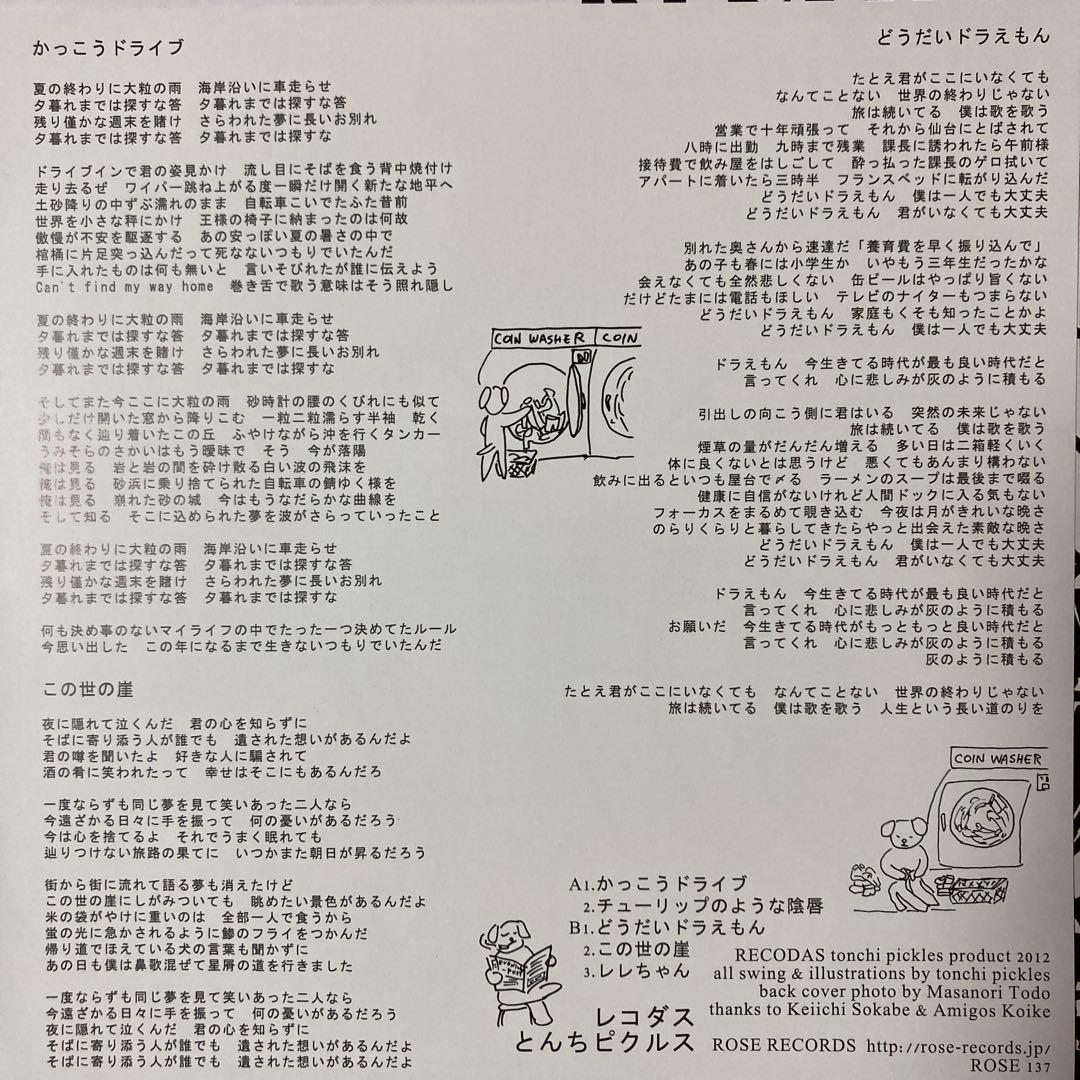 かっこうドライブ
夏の終わりに大粒の雨　海岸沿いに車走らせ
夕暮れまでは探すな答　夕暮れまでは探すな答
残り僅かな週末を賭け　さらわれた夢に長いお別れ
夕暮れまでは探すな答　夕暮れまでは探すな
ドライブインで君の姿見かけ　流し目にそばを食う背中焼付け
走り去るぜ　ワイパー跳ね上がる度一瞬だけ開く新たな地平へ
土砂降りの中ずぶ濡れのまま　自転車こいでたふた昔前
世界を小さな秤にかけ　王様の椅子に納まったのは何故
傲慢が不安を駆逐する　あの安っぽい夏の暑さの中で
棺桶に片足突っ込んだって死なないつもりでいたんだ
手に入れたものは何も無いと　言いそびれたが誰に伝えよう
Can't find my way home　巻き舌で歌う意味はそう照れ隠し
夏の終わりに大粒の雨　海岸沿いに車走らせ
夕暮れまでは探すな答　夕暮れまでは探すな答
残り僅かな週末を賭け　さらわれた夢に長いお別れ
夕暮れまでは探すな答　夕暮れまでは探すな
そしてまた今ここに大粒の雨　砂時計の腰のくびれにも似て
少しだけ開いた窓から降りこむ　一粒二粒濡らす半袖　乾く
間もなく辿り着いたこの丘　ふやけながら沖を行くタンカー
うみそらのさかいはもう曖昧で　そう　今が落陽
俺は見る　岩と岩の間を砕け散る白い波の飛沫を
俺は見る　砂浜に乗り捨てられた自転車の錆ゆく様を
俺は見る　崩れた砂の城　今はもうなだらかな曲線を
そして知る　そこに込められた夢を波がさらっていったこと
夏の終わりに大粒の雨　海岸沿いに車走らせ
夕暮れまでは探すな答　夕暮れまでは探すな答
残り僅かな週末を賭け　さらわれた夢に長いお別れ
夕暮れまでは探すな答　夕暮れまでは探すな
何も決め事のないマイライフの中でたった一つ決めてたルール
今思い出した　この年になるまで生きないつもりでいたんだ
この世の崖
夜に隠れて泣くんだ　君の心を知らずに
そばに寄り添う人が誰でも　遺された想いがあるんだよ
君の噂を聞いたよ　好きな人に騙されて
酒の肴に笑われたって　幸せはそこにもあるんだろ
一度ならずも同じ夢を見て笑いあった二人なら
今遠ざかる日々に手を振って　何の憂いがあるだろう
今は心を捨てるよ　それでうまく眠れても
辿りつけない旅路の果てに　いつかまた朝日が昇るだろう
街から街に流れて語る夢も消えたけど
この世の崖にしがみついても　眺めたい景色があるんだよ
米の袋がやけに重いのは　全部一人で食うから
蛍の光に急かされるように鯵のフライをつかんだ
帰り道でほえている犬の言葉も聞かずに
あの日も僕は鼻歌混ぜて星屑の道を行きました
一度ならずも同じ夢を見て笑いあった二人なら
今遠ざかる日々に手を振って　何の憂いがあるだろう
夜に隠れて泣くんだ　君の心を知らずに
そばに寄り添う人が誰でも　遺された想いがあるんだよ
そばに寄り添う人が誰でも　遺された想いがあるんだよ
どうだいドラえもん
たとえ君がここにいなくても
なんてことない　世界の終わりじゃない
旅は続いてる　僕は歌を歌う
営業で十年頑張って　それから仙台にとばされて
八時に出勤　九時まで残業　課長に誘われたら午前様
接待費で飲み屋をはしごして　酔っ払った課長のゲロ拭いて
アパートに着いたら三時半　フランスベッドに転がり込んだ
どうだいドラえもん　僕は一人でも大丈夫
どうだいドラえもん　君がいなくても大丈夫
別れた奥さんから速達だ「養育費を早く振り込んで」
あの子も春には小学生か　いやもう三年生だったかな
会えなくても全然悲しくない　缶ビールはやっぱり旨くない
だけどたまには電話もほしい　テレビのナイターもつまらない
どうだいドラえもん　家庭もくそも知ったことかよ
どうだいドラえもん　僕は一人でも大丈夫
ドラえもん　今生きてる時代が最も良い時代だと
言ってくれ　心に悲しみが灰のように積もる
引出しの向こう側に君はいる　突然の未来じゃない
旅は続いてる　僕は歌を歌う
煙草の量がだんだん増える　多い日は二箱軽くいく
体に良くないとは思うけど　悪くてもあんまり構わない
飲みに出るといつも屋台で〆る　ラーメンのスープは最後まで啜る
健康に自信がないけれど人間ドックに入る気もない
フォーカスをまるめて覗き込む　今夜は月がきれいな晩さ
のらりくらりと暮らしてきたらやっと出会えた素敵な晩さ
どうだいドラえもん　僕は一人でも大丈夫
どうだいドラえもん　君がいなくても大丈夫
ドラえもん　今生きてる時代が最も良い時代だと
言ってくれ　心に悲しみが灰のように積もる
お願いだ　今生きてる時代がもっともっと良い時代だと
言ってくれ　心に悲しみが灰のように積もる
灰のように積もる
たとえ君がここにいなくても　なんてことない　世界の終わりじゃない
旅は続いてる　僕は歌を歌う　人生という長い道のりを
COIN WASHER
COIN
COIN WASHER
A1.かっこうドライブ
2.チューリップのような陰唇
B1.どうだいドラえもん
2.この世の崖
3.レレちゃん
レコダス
とんちピクルス
RECODAS tonchi pickles product 2012
all swing & illustrations by tonchi pickles
back cover photo by Masanori Todo
thanks to Keiichi Sokabe & Amigos Koike
ROSE RECORDS http://rose-records.jp/
ROSE 137